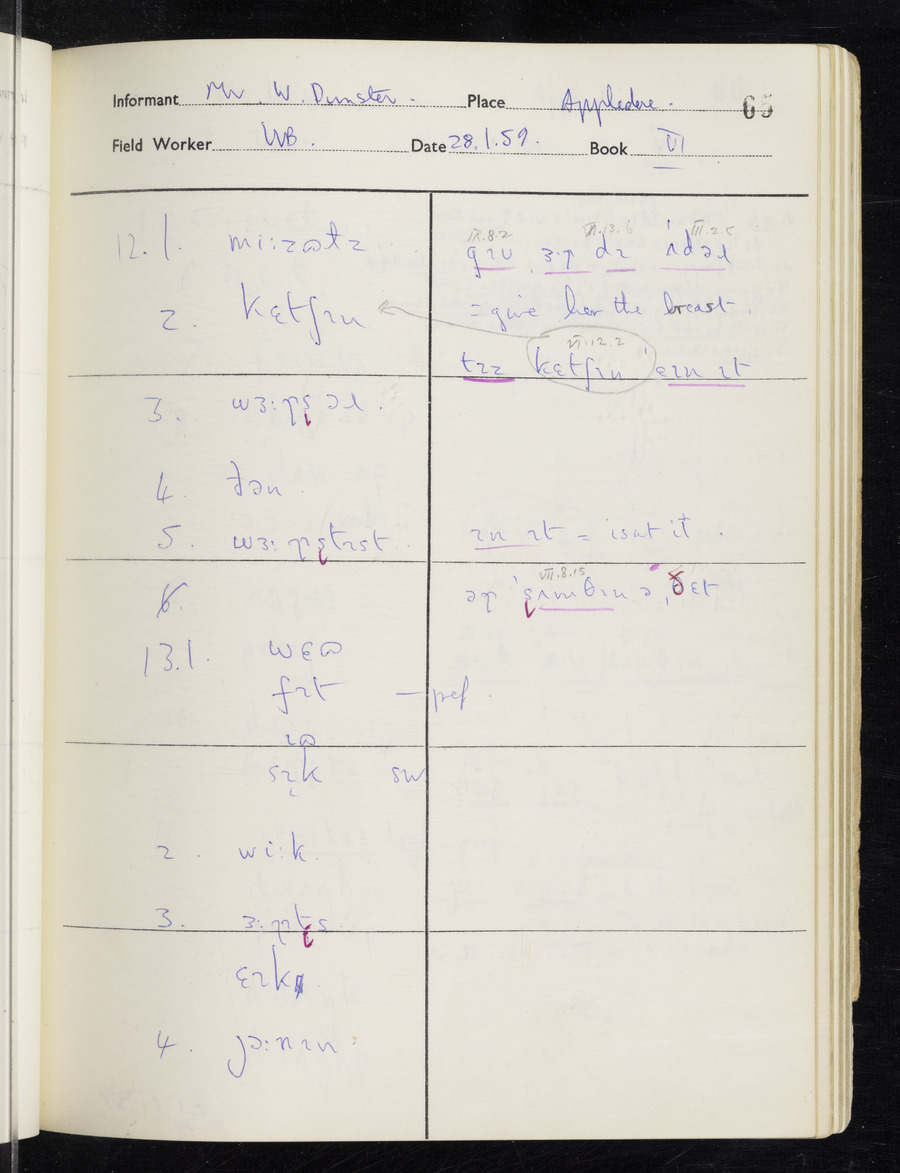 Informant Mr. W. Dunster. Place Appledore. 65
Field Worker WB. Date 28.1.59. Book VI
12. 1. miːzʊɫz
IX.8.2 VI.13.6 III.2.5
gɪv ɜːɽ dɪ ˈʌdəɫ
2. kɛtʃɪn
= give her the breast.
VI.12.2
kɛtʃɪn
3. wɜːɽʂ əɫ.
4. ðən.
5. wɜːɽʂtɪst.
ɪn ɪt = isnt it.
6.
VII.8.15
əɽ ˈʂʌmθɪn ə ˌðɛt
13.1. wɛʊ
fɪt — pref.
ɪʊ
sɪk sw
2. wiːk.
3. ɜːɽts.
ɛɪk
4. jɔːnɪn.